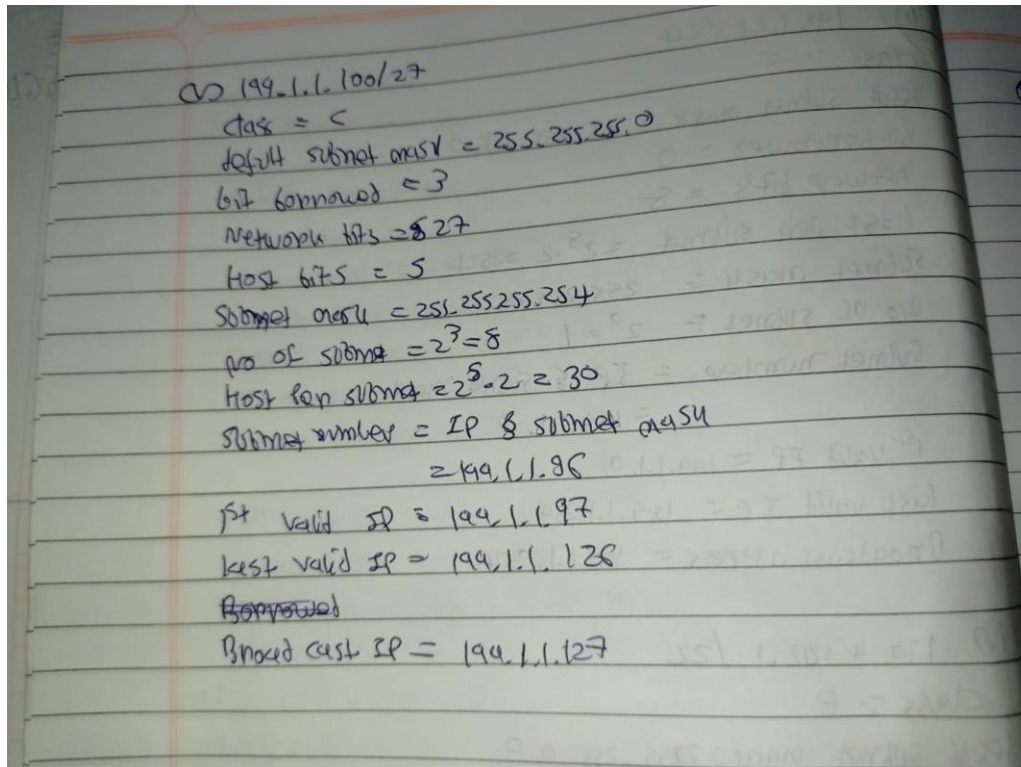 (v) 199.1.1.100/27
class = C
defult subnet mask = 255.255.255.0
bit borrowed = 3
Network bits = 27
Host bits = 5
Subnet mask = 255.255.255.254
no of subnet = 2³ = 8
Host per subnet = 2⁵-2 = 30
Subnet number = IP & subnet mask
= 199.1.1.96
1st valid IP = 199.1.1.97
Last valid IP = 199.1.1.126
Borrowed
Broad cast IP = 199.1.1.127